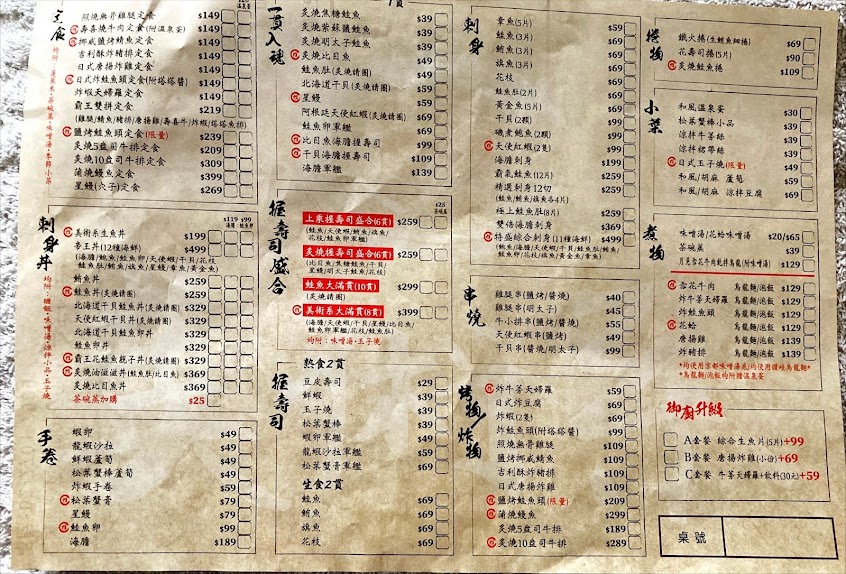 主食
照燒無骨雞腿定食 $149
壽喜燒牛肉定食(附溫泉蛋) $149
挪威鹽烤鯖魚定食 $149
吉利酥炸豬排定食 $149
日式唐揚炸雞定食 $149
日式炸鮭魚頭定食(附塔塔醬) $149
炸蝦天婦羅定食 $149
霸王雙拼定食 $219
(雞腿/鯖魚/豬排/唐揚雞/壽喜牛/炸蝦/塔塔魚排)
鹽烤鮭魚頭定食(限量) $239
炙燒5盎司牛排定食 $209
炙燒10盎司牛排定食 $309
蒲燒鰻魚定食 $399
星鰻(穴子)定食 $269
刺身丼
$119 $99
海膽 鮭魚卵
美術系生魚丼 $199
帝王丼(12種海鮮) $499
鮪魚丼 $259
鮭魚丼(炙燒請圈) $259
北海道干貝鮭魚丼(炙燒請圈) $329
天使紅蝦鮭魚丼(炙燒請圈) $329
北海道干貝鮭魚卵丼 $329
鮭魚卵丼 $329
霸王花鮭魚親子丼(炙燒請圈) $369
炙燒油滋滋丼(鮭魚肚/比目魚) $369
炙燒比目魚丼 $369
茶碗蒸加購 $25
手卷
蝦卵 $49
龍蝦沙拉 $49
鮮蝦蘆筍 $49
松葉蟹棒蘆筍 $49
炸蝦手卷 $59
松葉蟹膏 $79
星鰻 $79
鮭魚卵 $99
海膽 $189
一貫入魂
炙燒焦糖鮭魚 $39
炙燒紫蘇鹽鮭魚 $39
炙燒明太子鮭魚 $39
炙燒比目魚 $49
鮭魚肚(炙燒請圈) $49
北海道干貝(炙燒請圈) $59
星鰻 $59
阿根廷天使紅蝦(炙燒請圈) $69
鮭魚卵軍艦 $69
比目魚海膽握壽司 $99
干貝海膽握壽司 $109
海膽軍艦 $139
握壽司盛合
$25
茶碗蒸
上泉握壽司盛合(6貫) $259
(鮭魚/天使蝦/鮪魚/旗魚/
花枝/鮭魚卵軍艦)
炙燒握壽司盛合(6貫) $259
(比目魚/焦糖鮭魚/干貝/
星鰻/明太子鮭魚/花枝)
鮭魚大滿貫(10貫) $299
(炙燒請圈)
美術系大滿貫(8貫) $399
(海膽/天使蝦/干貝/星鰻/比目魚/
鮭魚卵軍艦/花枝/鮭魚肚)
均附：味噌湯.玉子燒
握壽司
熟食2貫
豆皮壽司 $29
鮮蝦 $39
玉子燒 $39
松葉蟹棒 $39
蝦卵軍艦 $49
龍蝦沙拉軍艦 $59
松葉蟹膏軍艦 $59
生食2貫
鮭魚 $69
鮪魚 $69
旗魚 $69
花枝 $69
刺身
章魚(5片) $59
鮭魚(3片) $69
鮪魚(3片) $69
旗魚(3片) $69
花枝 $69
鮭魚肚(2片) $69
黃金魚(5片) $69
干貝(2顆) $69
磯煮鮑魚(2顆) $69
天使紅蝦(2隻) $69
海膽刺身 $199
霸氣鮭魚(12片) $259
精選刺身12切 $259
極上鮭魚肚(8片) $259
雙倍海膽刺身
特盛綜合刺身(11種海鮮) $499
串燒
雞腿串(鹽烤/醬燒) $40
雞腿串(明太子) $45
牛小排串(鹽烤/醬燒) $55
天使紅蝦串(鹽烤) $49
干貝串(醬燒/明太子) $99
烤物/炸物
炸牛蒡天婦羅 $59
日式炸豆腐 $69
炸蝦(2隻) $69
炸鮭魚頭(附塔塔醬) $99
照燒無骨雞腿 $109
鹽烤挪威鯖魚 $109
吉利酥炸豬排 $109
日式唐揚炸雞 $109
鹽烤鮭魚頭(限量) $209
蒲燒鰻魚 $299
炙燒5盎司牛排 $189
炙燒10盎司牛排 $289
捲物
鐵火捲(生鮪魚細捲) $69
花壽司捲(5片) $90
炙燒鮭魚捲 $109
小菜
和風溫泉蛋 $30
松葉蟹棒小品 $39
涼拌牛蒡絲 $39
涼拌裙帶絲 $39
日式玉子燒(限量) $49
和風/胡麻 蘆筍 $59
和風/胡麻 涼拌豆腐 $69
煮物
味噌湯/花蛤味噌湯 $20/$65
茶碗蒸 $39
月見雪花牛肉乾拌烏龍(附味噌湯) $129
雪花牛肉 烏龍麵/泡飯 $129
炸牛蒡天婦羅 烏龍麵/泡飯 $129
炸鮭魚頭 烏龍麵/泡飯 $129
花蛤 烏龍麵/泡飯 $129
唐揚雞 烏龍麵/泡飯 $139
炸豬排 烏龍麵/泡飯 $139
*均使用京都味噌湯底/均使用讚岐烏龍麵*
*烏龍麵/泡飯均附贈溫泉蛋
御廚升級
A套餐 綜合生魚片(5片)+99
B套餐 唐揚炸雞(小份)+69
C套餐 牛蒡天婦羅+飲料(30元)+59
桌號